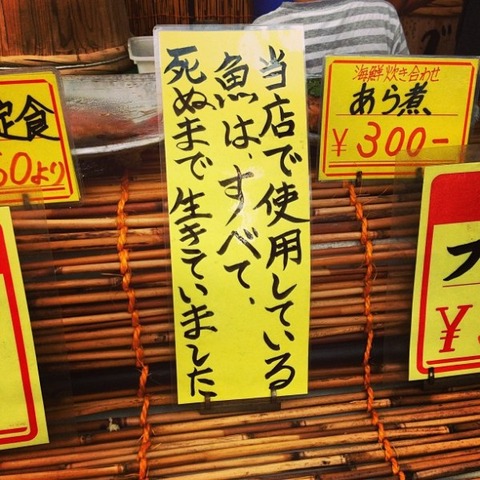 当店で使用している
魚は、すべて、
死ぬまで生きていました
海鮮炊き合わせ
あら煮
¥300-
定食
50より
¥